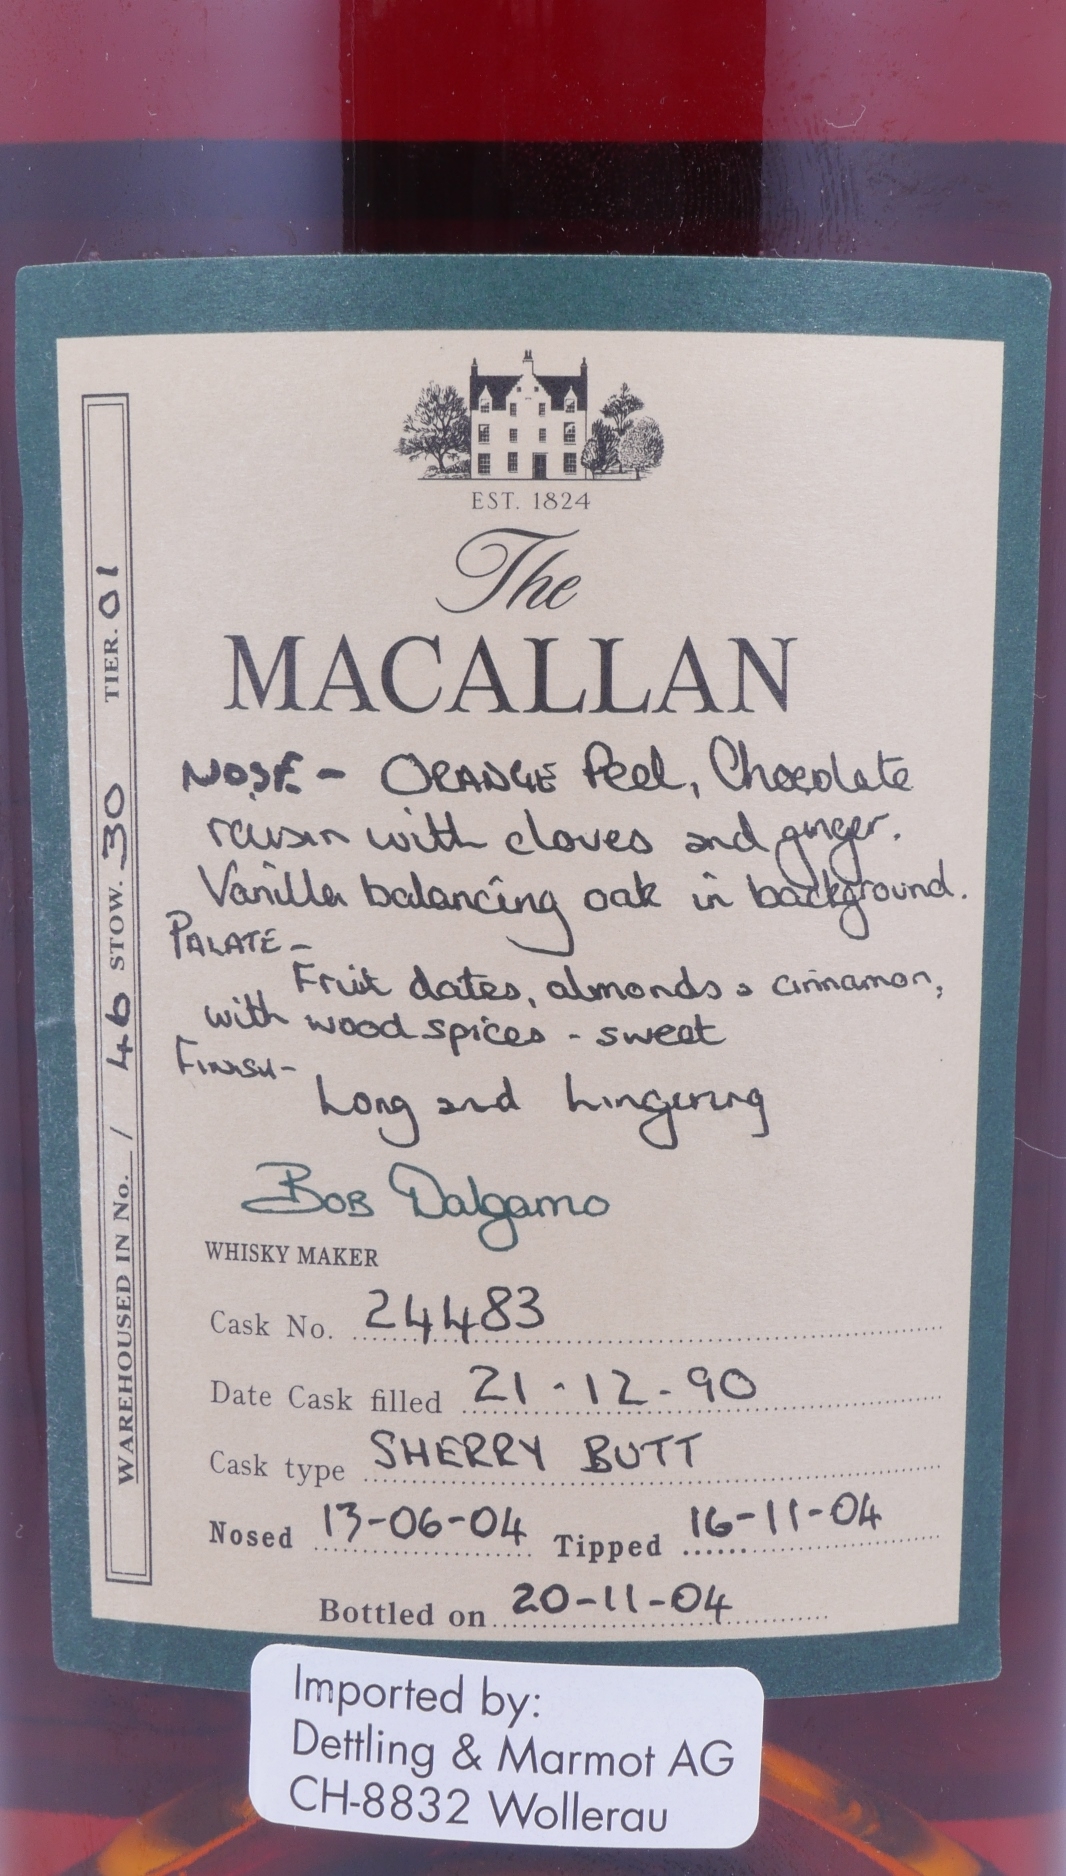 EST. 1824
The
MACALLAN
NOSE - ORANGE Peel, Chocolate
raisin with cloves and ginger.
Vanilla balancing oak in background.
PALATE -
Fruit dates, almonds & cinnamon,
with wood spices - sweet
FINISH -
Long and Lingering
BOB Dalgarno
WHISKY MAKER
Cask No. 24483
Date Cask filled 21-12-90
Cask type SHERRY BUTT
Nosed 13-06-04 Tipped 16-11-04
Bottled on 20-11-04
WAREHOUSED IN No. / 46 STOW. 30 TIER. 01
Imported by:
Dettling & Marmot AG
CH-8832 Wollerau